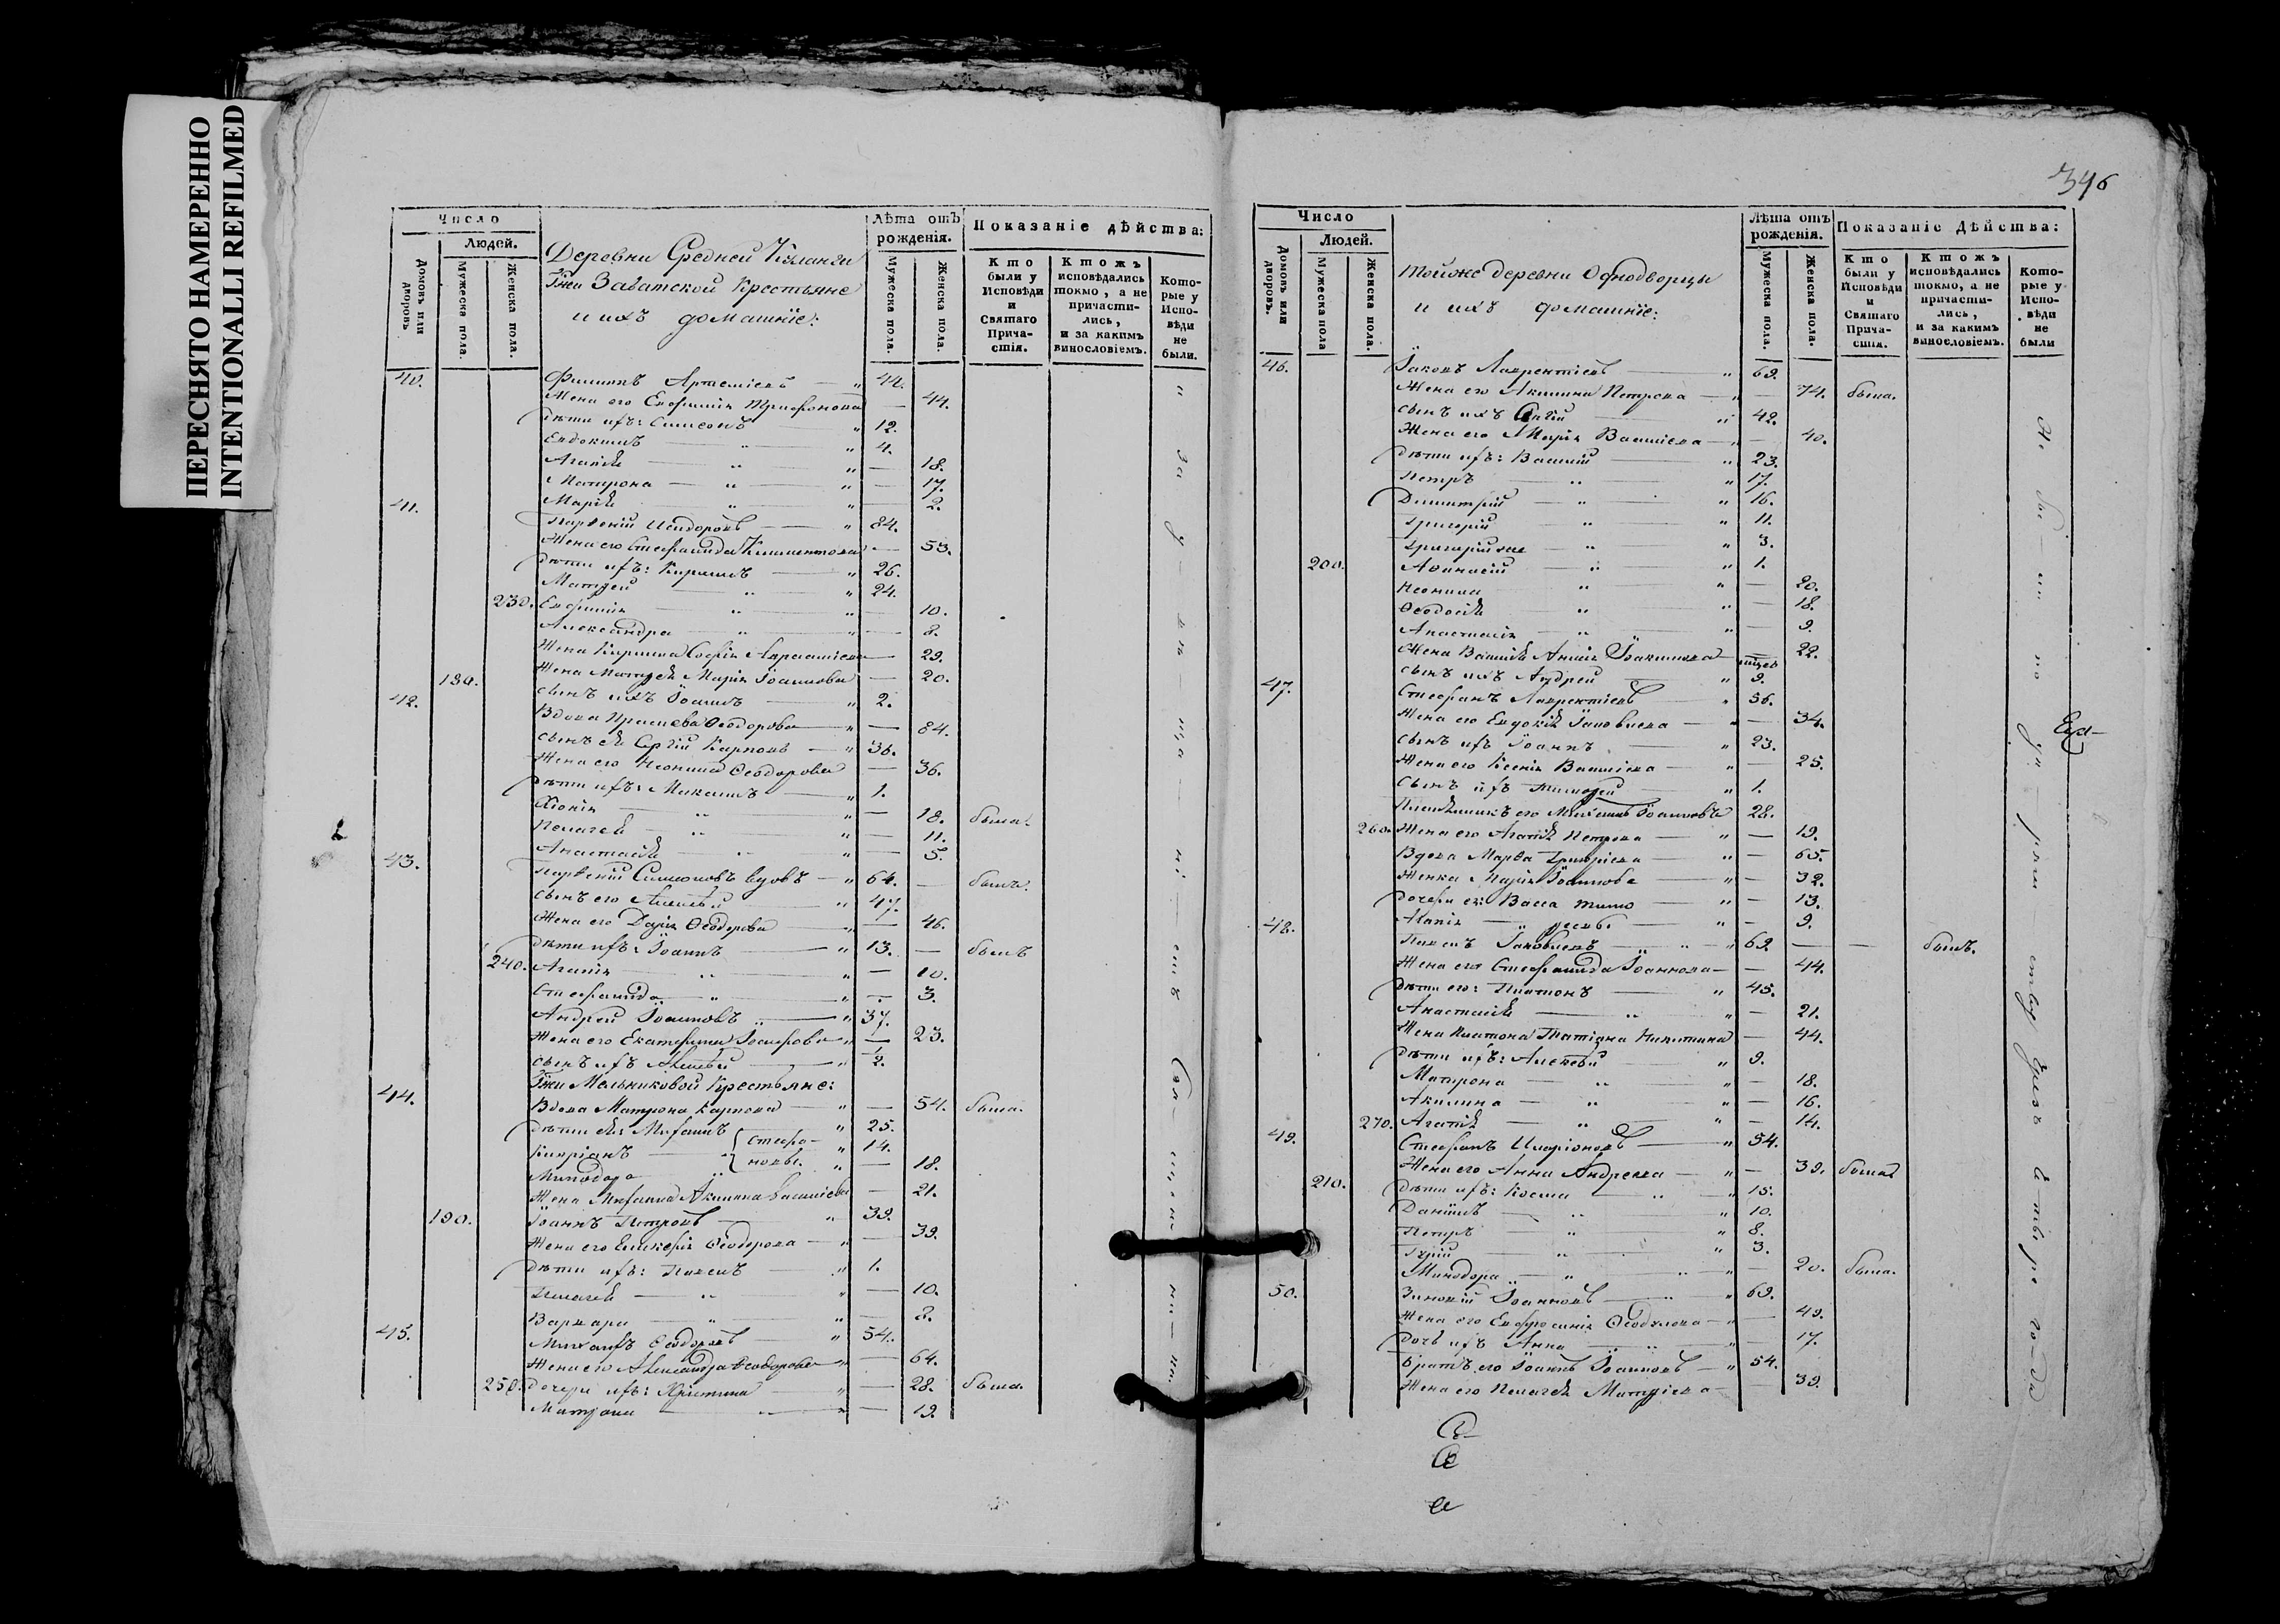 ПЕРЕСНЯТО НАМЕРЕННО
INTENTIONALLI REFILMED
Число
Людей.
Домовъ или дворовъ.
Мужеска пола.
Женска пола.
Деревни Средней
Гжи Крестьяне
и ихъ домашніе:
Лѣта отъ рожденія.
Мужеска пола.
Женска пола.
Показаніе дѣйства:
Кто были у Исповѣди и Святаго Причастія.
Ктожъ исповѣдались токмо, а не причастились, и за какимъ винословіемъ.
Которые у Исповѣди не были.
40. Филиппъ Артеміевъ 44.
Жена его Евфимія Трифонова 44.
Дѣти ихъ: Симеонъ 12.
Евдокимъ 4.
Агапія 18.
Матрона 17.
Марія 2.
41. Парѳеній Исидоровъ 84.
Жена его Стефанида Климентова 53.
Дѣти ихъ: Кириллъ 26.
Матѳей 24.
230. Евфимія 10.
Александра 8.
Жена Кирилла Софія 29.
180. Жена Матѳея Марія Іоаннова 20.
сынъ ихъ Іоаннъ 2.
42. Вдова Ѳеодорова 84.
сынъ ея Сергій Карповъ 36.
Жена его Неонила Ѳеодорова 36.
Дѣти ихъ: Михаилъ 1.
Хіонія 18. была.
Пелагея 11.
Анастасія 5.
43. Парѳеній Симеоновъ вдовъ 64. былъ.
сынъ его Алексѣй 47.
Жена его Дарія Ѳеодорова 46.
Дѣти ихъ: Іоаннъ 13. былъ
240. Агапія 10.
Стефанида 3.
Андрей Іоанновъ 37.
Жена его Екатерина Іосифова 23.
сынъ ихъ Алексѣй 1/2.
Гжи Мельниковой Крестьяне:
44. Вдова Матрона Карпова 54. была.
Дѣти ея: Михаилъ 25.
Кипріанъ Стефановы 14.
Минодора 18.
Жена Михаила Акилина Василіева 21.
190. Іоаннъ Петровъ 39.
Жена его Гликерія Ѳеодорова 39.
Дѣти ихъ: Павелъ 1.
Пелагея 10.
Варвара 8.
45. Ѳеодоровъ 54.
Жена его Александра Ѳеодорова 64.
250. Дочери ихъ: Христина 28. была.
Матрона 19.
346
Число
Людей.
Домовъ или дворовъ.
Мужеска пола
Женска пола.
Тойже деревни Однодворцы
и ихъ домашніе:
Лѣта отъ рожденія.
Мужеска пола.
Женска пола.
Показаніе Дѣйства:
Кто были у Исповѣди и Святаго Причастія.
Ктожъ исповѣдались токмо, а не причастились, и за какимъ винословіемъ.
Которые у Исповѣди не были
46. Іаковъ Лаврентіевъ 69.
Жена его Акилина Петрова 74. была.
сынъ ихъ Сергій 42.
Жена его Марія Василіева 40.
Дѣти ихъ: Василій 23.
Петръ 17.
Димитрій 16.
Григорій 11.
Григорій же 3.
200. Аѳанасій 1.
Неонила 20.
Ѳеодосія 18.
Анастасія 9.
Жена Василія Анна 22.
сынъ ихъ Андрей 9.
47. Стефанъ Лаврентіевъ 56.
Жена его Евдокія Іаковлева 34.
сынъ ихъ Іоаннъ 23.
Жена его Ксенія Василіева 25.
сынъ ихъ Тимоѳей 1.
Племянникъ его Михаилъ Іоанновъ 28.
260. Жена его Агапія Петрова 19.
Вдова Марѳа Григоріева 65.
Женка Марія Іоаннова 32.
Дочери ея: Васса 13.
9.
48. Павелъ Іаковлевъ 69. былъ.
Жена его Стефанида Іоаннова 44.
Дѣти его: Платонъ 45.
Анастасія 21.
Жена Платона Татіана Никитина 44.
Дѣти ихъ: Алексѣй 9.
Матрона 18.
Акилина 16.
270. Агапія 14.
49. Стефанъ Иларіоновъ 54.
Жена его Анна Андреева 39. была
210. Дѣти ихъ: Косма 15.
Даніилъ 10.
Петръ 8.
Гурій 3.
Минодора 20. была.
50. Зиновій Іоанновъ 69.
Жена его Евфросинія 49.
Дочь ихъ Анна 17.
Братъ его Іоаннъ Іоанновъ 54.
Жена его Пелагея Матѳіева 39.